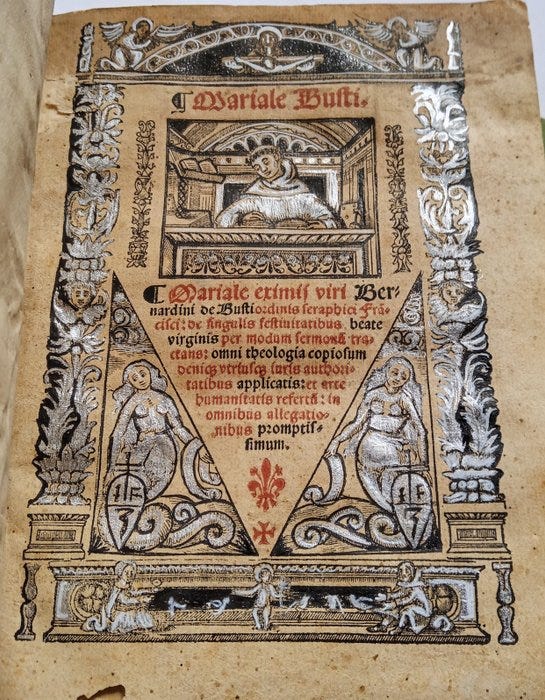 ¶ Mariale Busti.
¶ Mariale eximij viri Ber-
nardini de Busti ordinis seraphici Frā-
cisci: de singulis festiuitatibus beate
virginis per modum sermonū tra-
ctans: omni theologia copiosum
deniqꝫ vtriusqꝫ iuris authori-
tatibus applicatis: et arte
humanitatis refertū: in
omnibus allegatio-
nibus promptis-
simum.